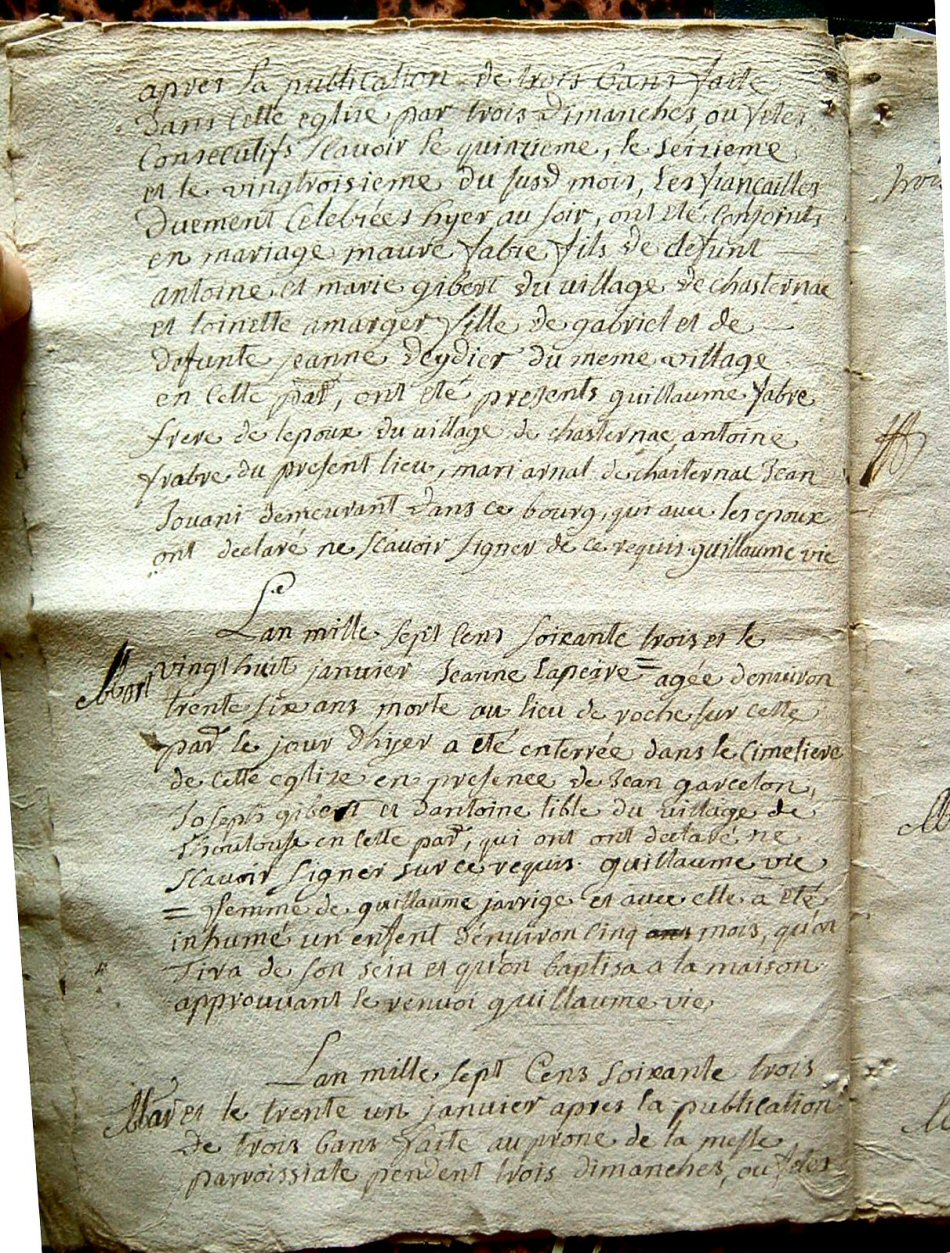 apres la publication de trois bans faite
dans cette eglise par trois dimanches ou fetes
consecutifs scavoir le quinzieme, le seizieme
et le vingtroisieme du susd mois, les fiancailles
duement celebrées hyer au soir, ont eté conjoints
en mariage maure fabre fils de defunt
antoine et marie gibert du village de chasternac
et toinette amarger fille de gabriel et de
defunte jeanne deydier du meme village
en cette par, ont eté presents guillaume fabre
frere de lepoux du village de chasternac, antoine
frabre du present lieu, mari arnal de chasternac Jean
Jouani demeurant dans ce bourg, qui avec les epoux
ont declaré ne scavoir signer de ce requis. guillaume vie
Lan mille sept cens soixante trois et le
Mort vingt huit janvier Jeanne Lapeire = agée denviron
trente six ans morte au lieu de roche sur cette
par le jour dhyer a eté enterrée dans le cimetiere
de cette eglise en presence de Jean garcelon,
Joseph gibert et dantoine tible du village de
en cette par, qui ont ont declaré ne
scavoir signer sur ce requis. guillaume vie
= femme de guillaume jarrige et avec elle a eté
inhumé un enfent denviron cinq ans mois, qu'on
tira de son sein et qu'on baptisa a la maison
approuvant le renvoi guillaume vie
Lan mille sept cens soixante trois
Mar et le trente un janvier apres la publication
de trois bans faite au prone de la messe
parroissiale pendent trois dimanches, ou fetes